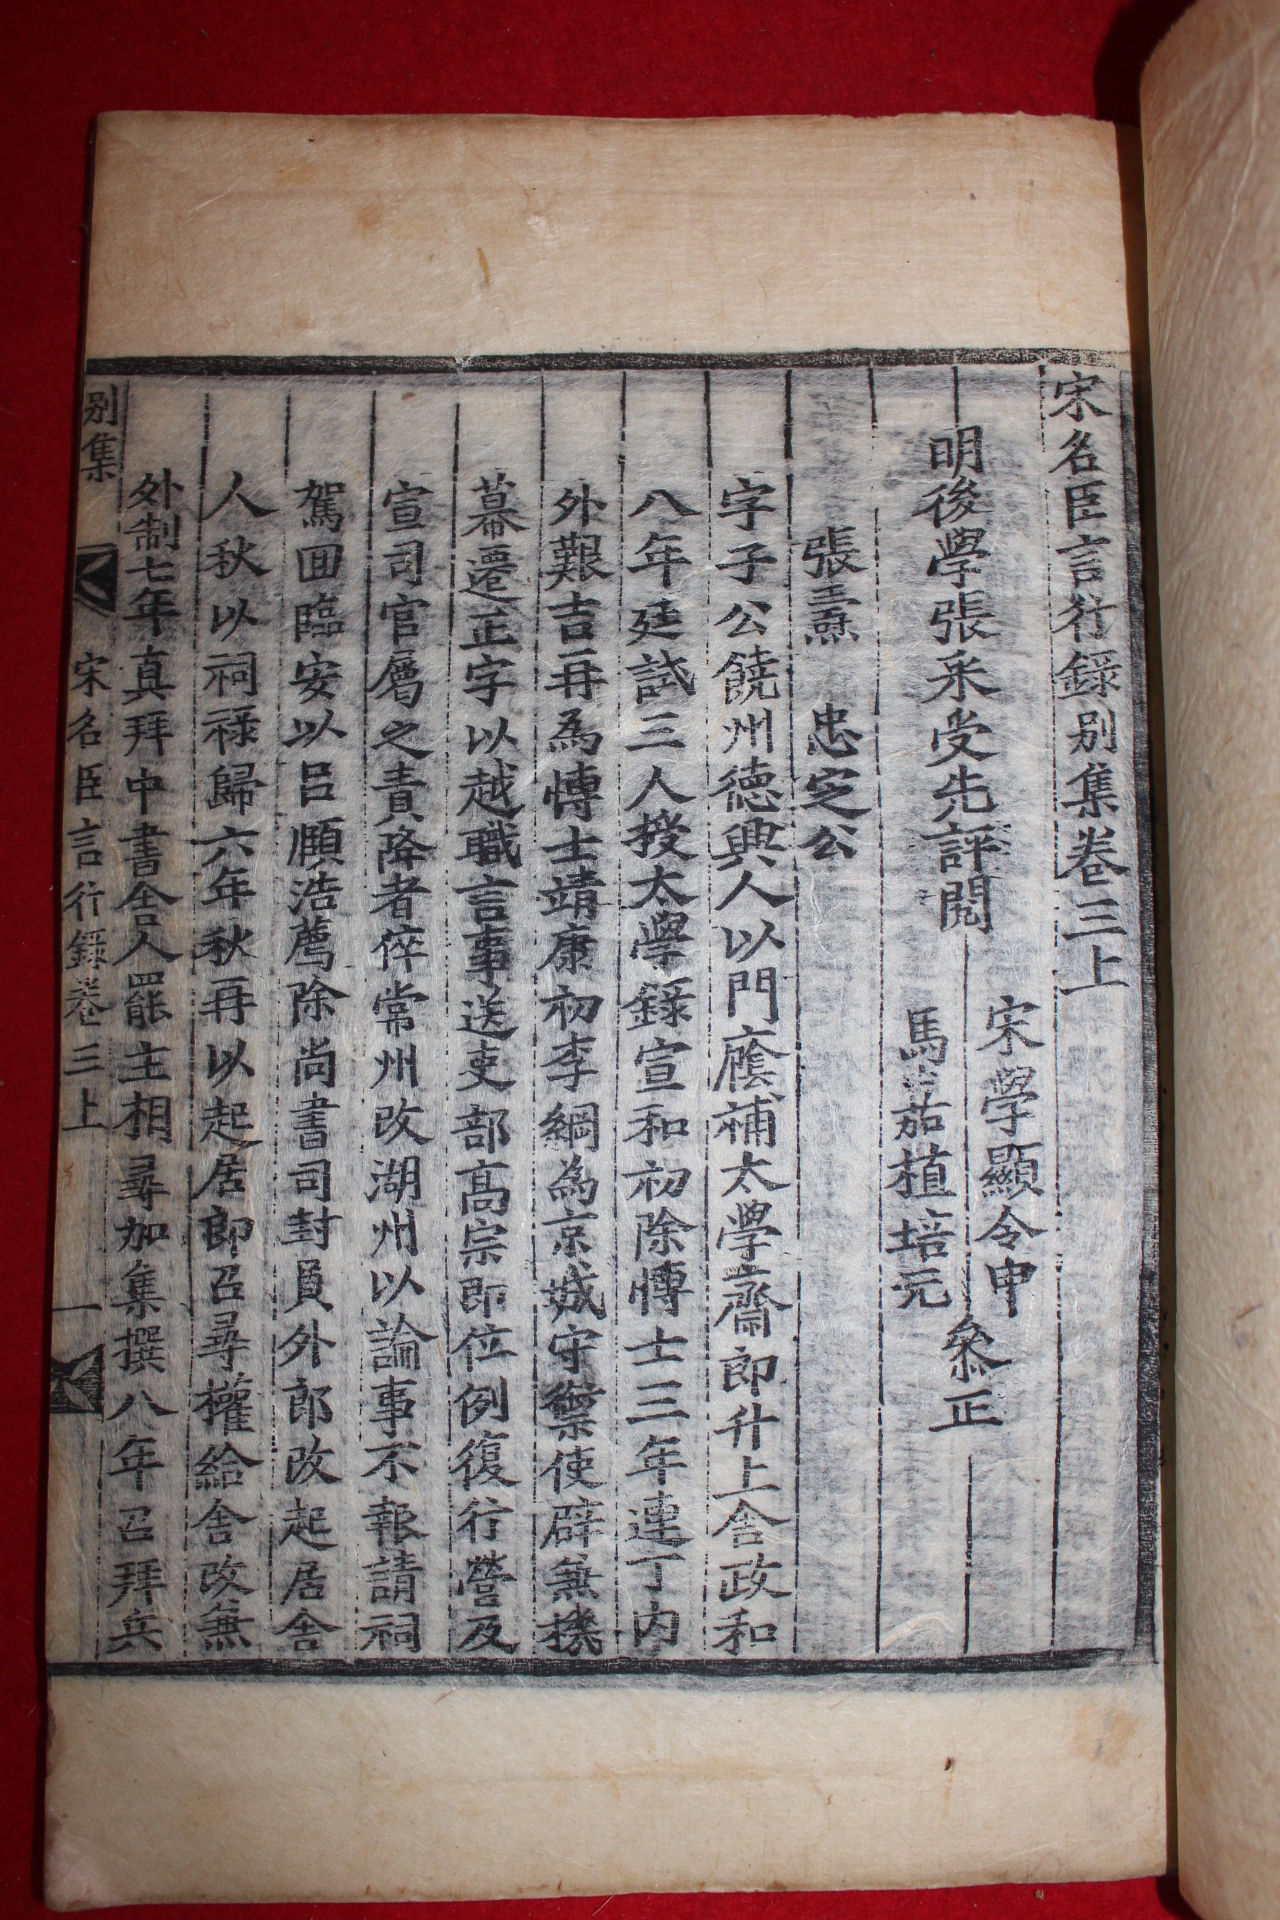 宋名臣言行錄別集卷三上
明後學張采受先評閱
宋學顯令申
馬嘉植培元
叅正
張燾 忠定公
字子公饒州德興人以門廕補太學齋郎升上舍政和
八年廷試三人授太學錄宣和初除博士三年連丁內
外艱吉再為博士靖康初李綱為京城守禦使辟兼機
幕遷正字以越職言事送吏部高宗即位例復行營及
宣司官屬之責降者倅常州改湖州以論事不報請祠
駕囬臨安以呂頤浩薦除尚書司封員外郎改起居舍
人秋以祠祿歸六年秋再以起居郎召尋權給舍改兼
外制七年真拜中書舍人罷主相尋加集撰八年召拜兵
別集
宋名臣言行錄卷三上
一